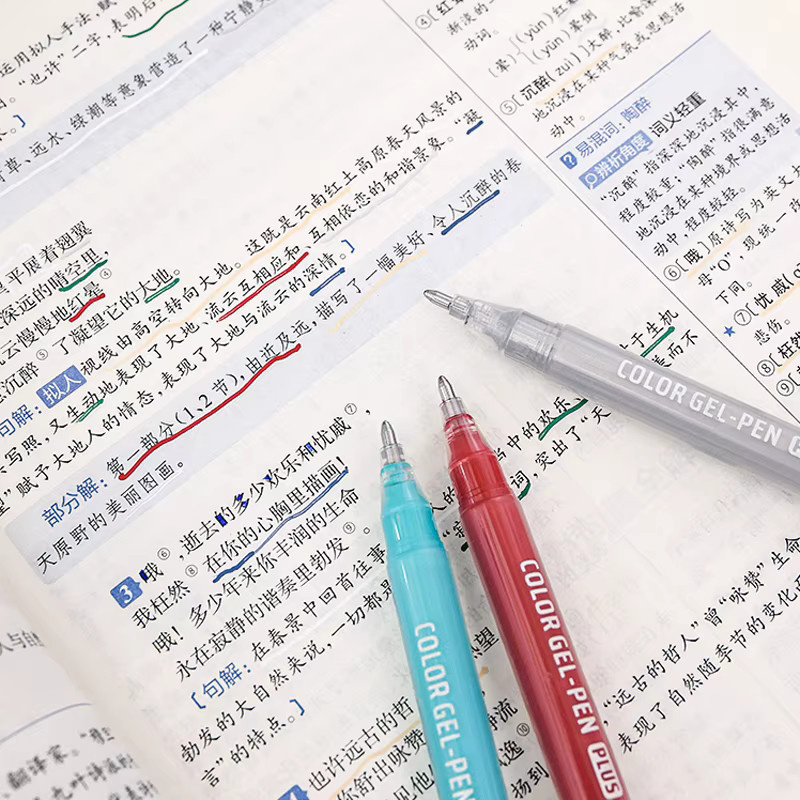 运用拟人手法,赋
“也许”二字,表明后
草、远水、绿潮等意象营造了一种宁静
平展着翅翼
深远的晴空里,
云慢慢地红晕④
沉醉⑤了凝望它的大地。
句解:拟人 视线由高空转向大地。这既是云南红土高原春天风景的
写照,又生动地表现了大地、流云互相应和、互相依恋的和谐景象。“凝
望”赋予大地人的情态,表现了大地与流云的深情。]
部分解:第一部分(1、2节),由近及远,描写了一幅美好、令人沉醉的春
天原野的美丽图画。
3 哦⑥,逝去的多少欢乐和忧戚⑦,
我枉然⑧在你的心胸里描画!
哦!多少年来你丰润的生命
永在寂静的谐奏里勃发⑨。
[句解:在春景中回首往事
勃发的大自然来说,一切都是
言”的特点。]
也许远古的哲
你舒出咏赞
于生机
美而不
当中的欢乐
词,突出了“天
“远古的哲人”曾“咏赞”生命
表现了自然随季节的变化
④(红晕
渐淡的
动词。
(晕) (yùn)红晕
(yūn)晕倒
⑤(沉醉(zuì))大醉,比喻深
地沉浸在某种气氛或思想活
动中。
易混词:陶醉
辨析角度 词义轻重
“沉醉”指深深地沉浸其中,
程度较重;“陶醉”指很满意
地沉浸在某种境界或思想活
动中,程度较轻。
⑥(哦)原诗写为英文
母“O”,现统一改
下同。
⑦(忧戚(
悲伤。
⑧(枉然
⑨(
翻译家。
COLOR GEL-PEN
COLOR GEL-PEN PLUS
COLOR GEL-PEN